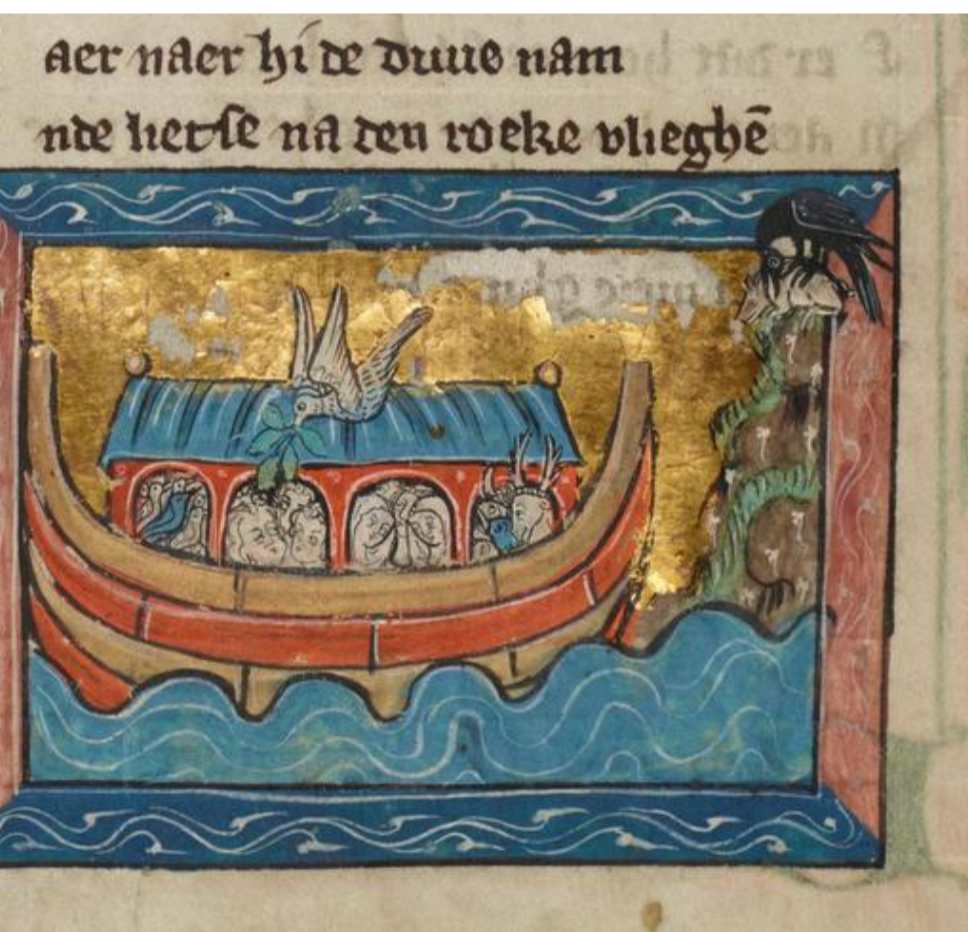 aer naer hi de duue nam
nde lietse na den roeke vlieghē